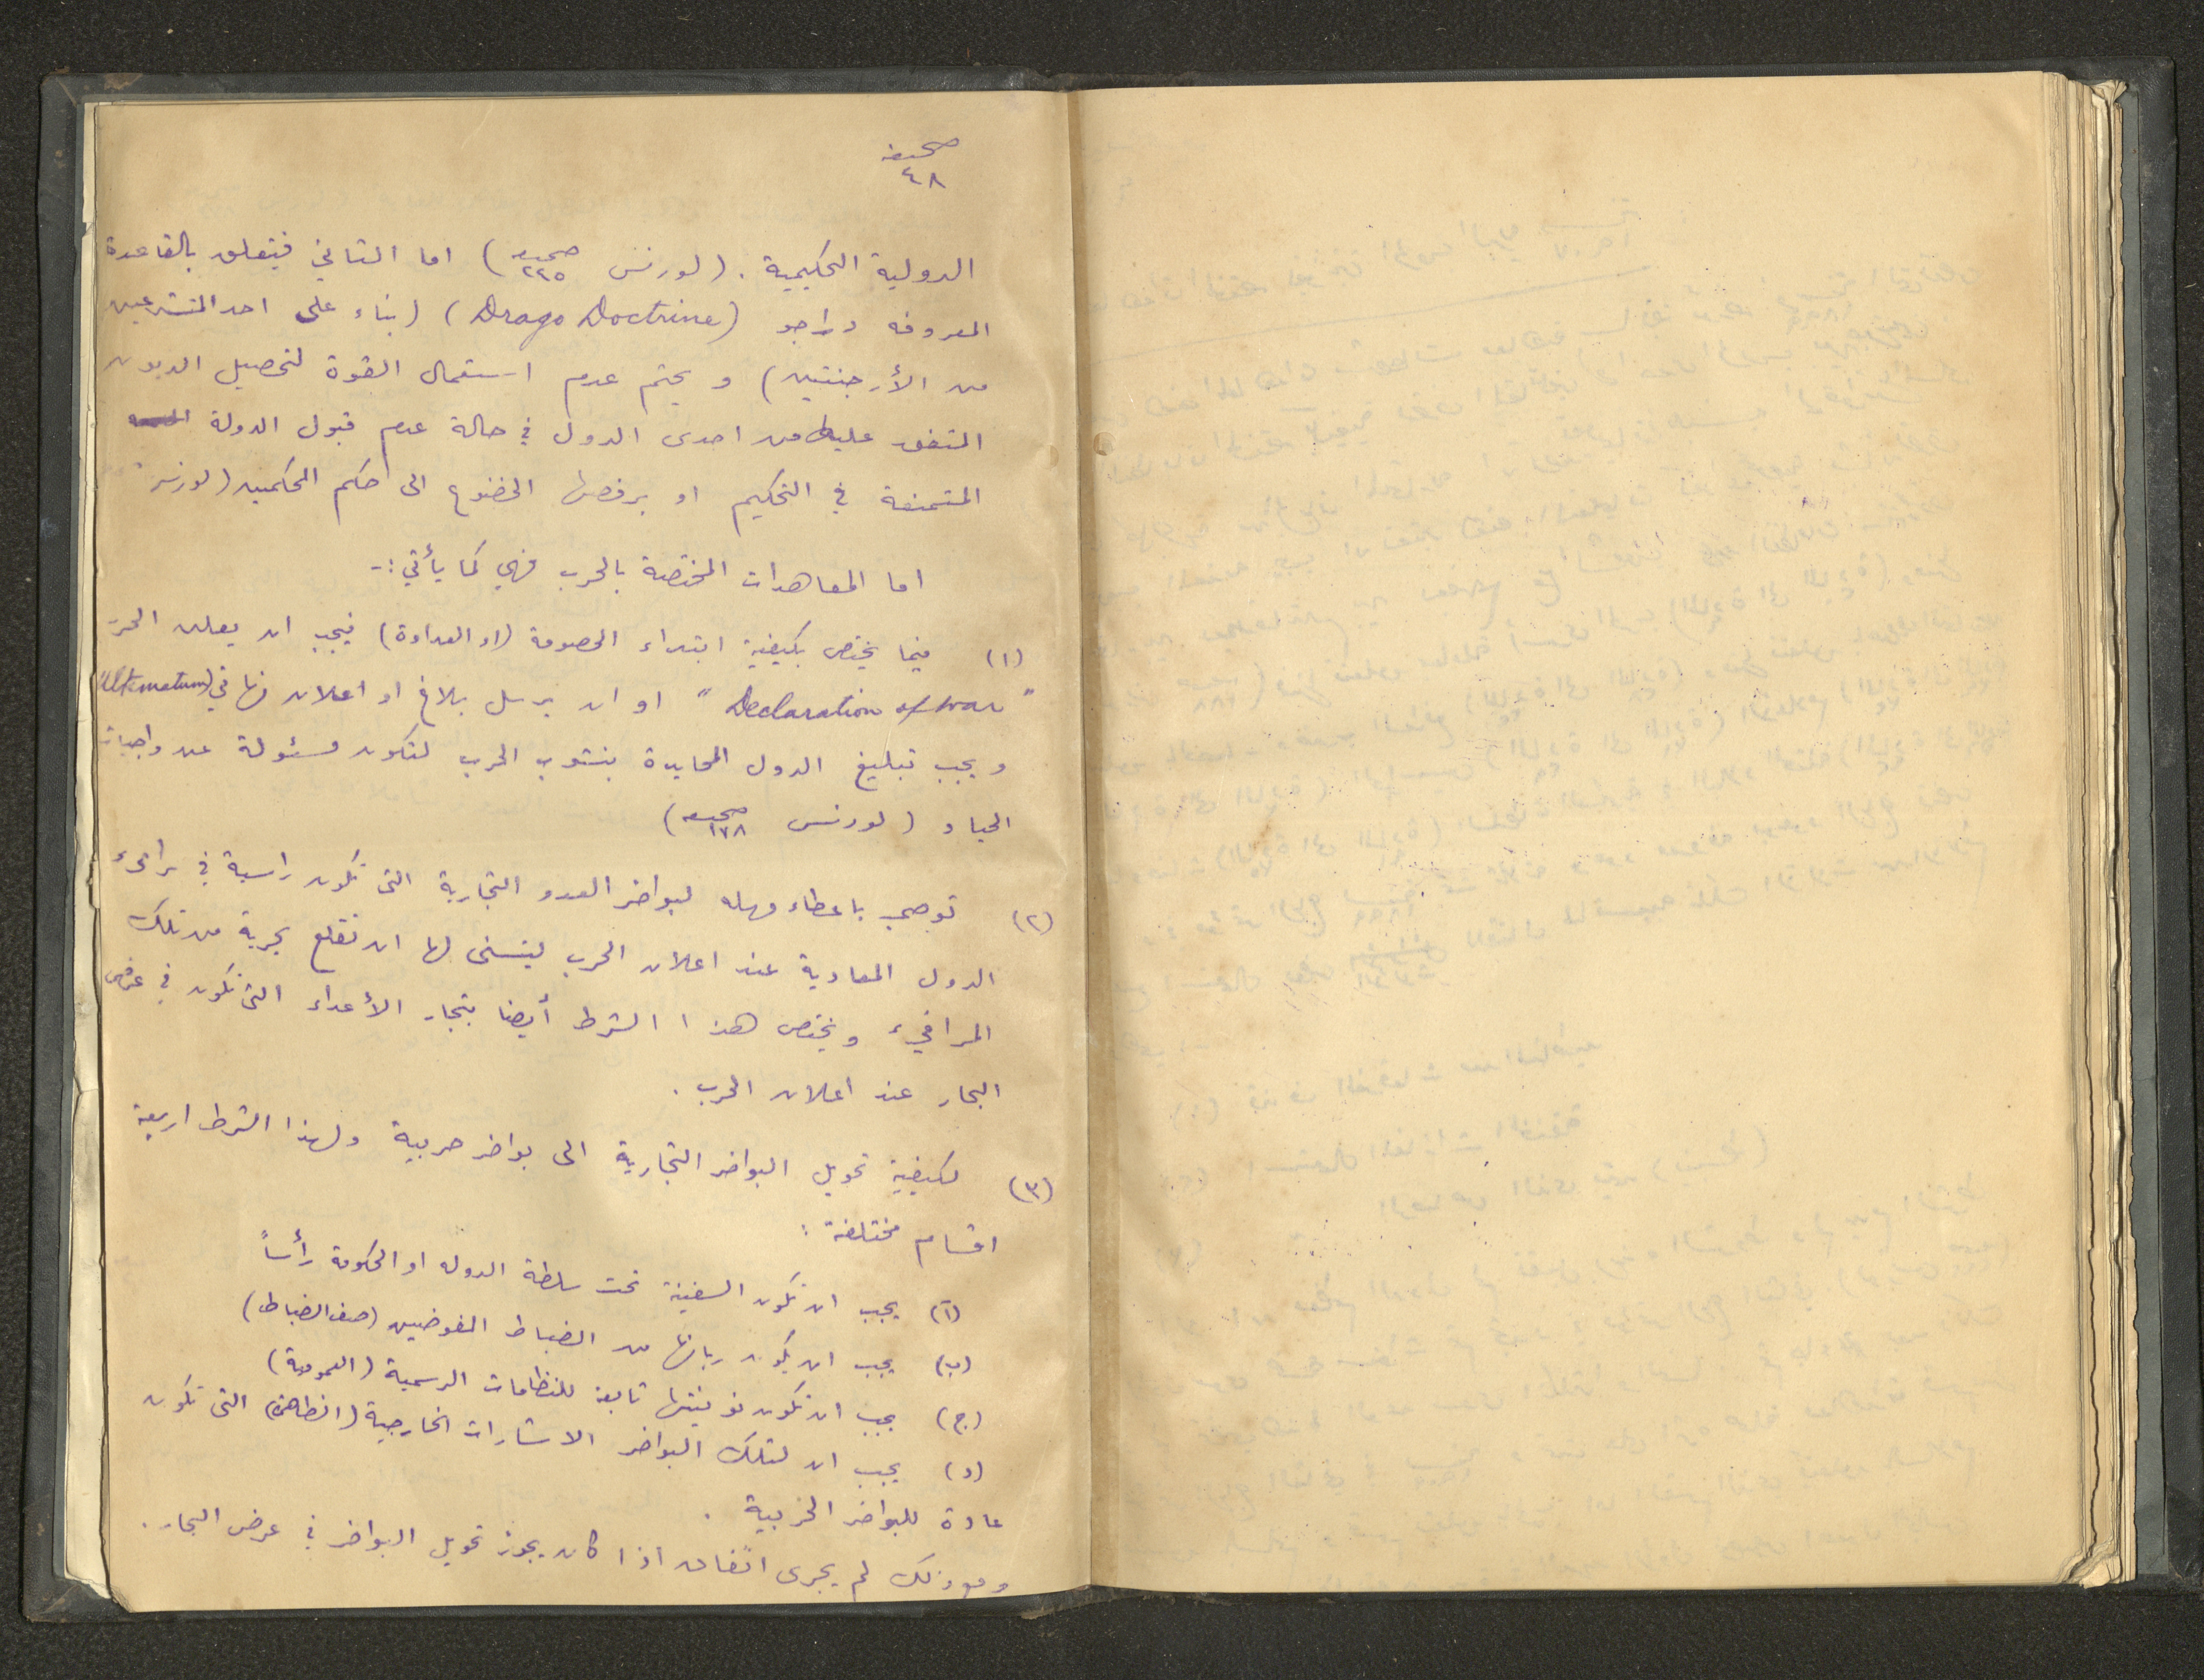 صحيفه
٤٨
الدولية التحكيمية . (لورنس صحيفه ٢٢٥) اما الثاني فيتعلق بالقاعدة
المعروفه دراجو (Drago Doctrine) (بناء على احد المتشرعين
من الأرجنتين) و يحتم عدم استعمال القوة لتحصيل الديون
المتفق عليها من احدى الدول في حالة عدم قبول الدولة
المتمنعة في التحكيم او برفضها الخضوع الى حكم المحكمين (لورنس
اما المعاهدات المختصة بالحرب فهي كما يأتي :-
(١) فيما يختص بكيفية ابتداء الخصومة (او العداوة) فيجب ان يعلن الحرب
"Declaration of war" او ان يرسل بلاغ او اعلان نهائي (Ultimatum)
و يجب تبليغ الدول المحايدة بنشوب الحرب لتكون مسئولة عن واجبات
الحياد (لورنس صحيفه ١٧٨)
(٢) توصي باعطاء مهله لبواخر العدو التجارية التى تكون راسية في مرافىء
الدول المعادية عند اعلان الحرب ليتسنى لها ان تقلع بحرية من تلك
المرافيء ويختص هذا الشرط أيضا بتجار الأعداء التى تكون في عرض
البحار عند اعلان الحرب .
(٣) لكيفية تحويل البواخر التجارية الى بواخر حربية ولهذا الشرط اربعة
اقسام مختلفة :
(أ) يجب ان تكون السفينة تحت سلطة الدوله او الحكومة رأساً
(ب) يجب ان يكون ربانها من الضباط المفوضين (صف الضباط)
(ج) يجب ان تكون نوتيتها تابعة للنظامات الرسمية (العمومية)
(د) يجب ان لتلك البواخر الاشارات الخارجية (الظاهرة) التى تكون
عادة للبواخر الحربية .
ومع ذلك لم يجرى اتفاق اذا كان يجوز تحويل البواخر في عرض البحار .